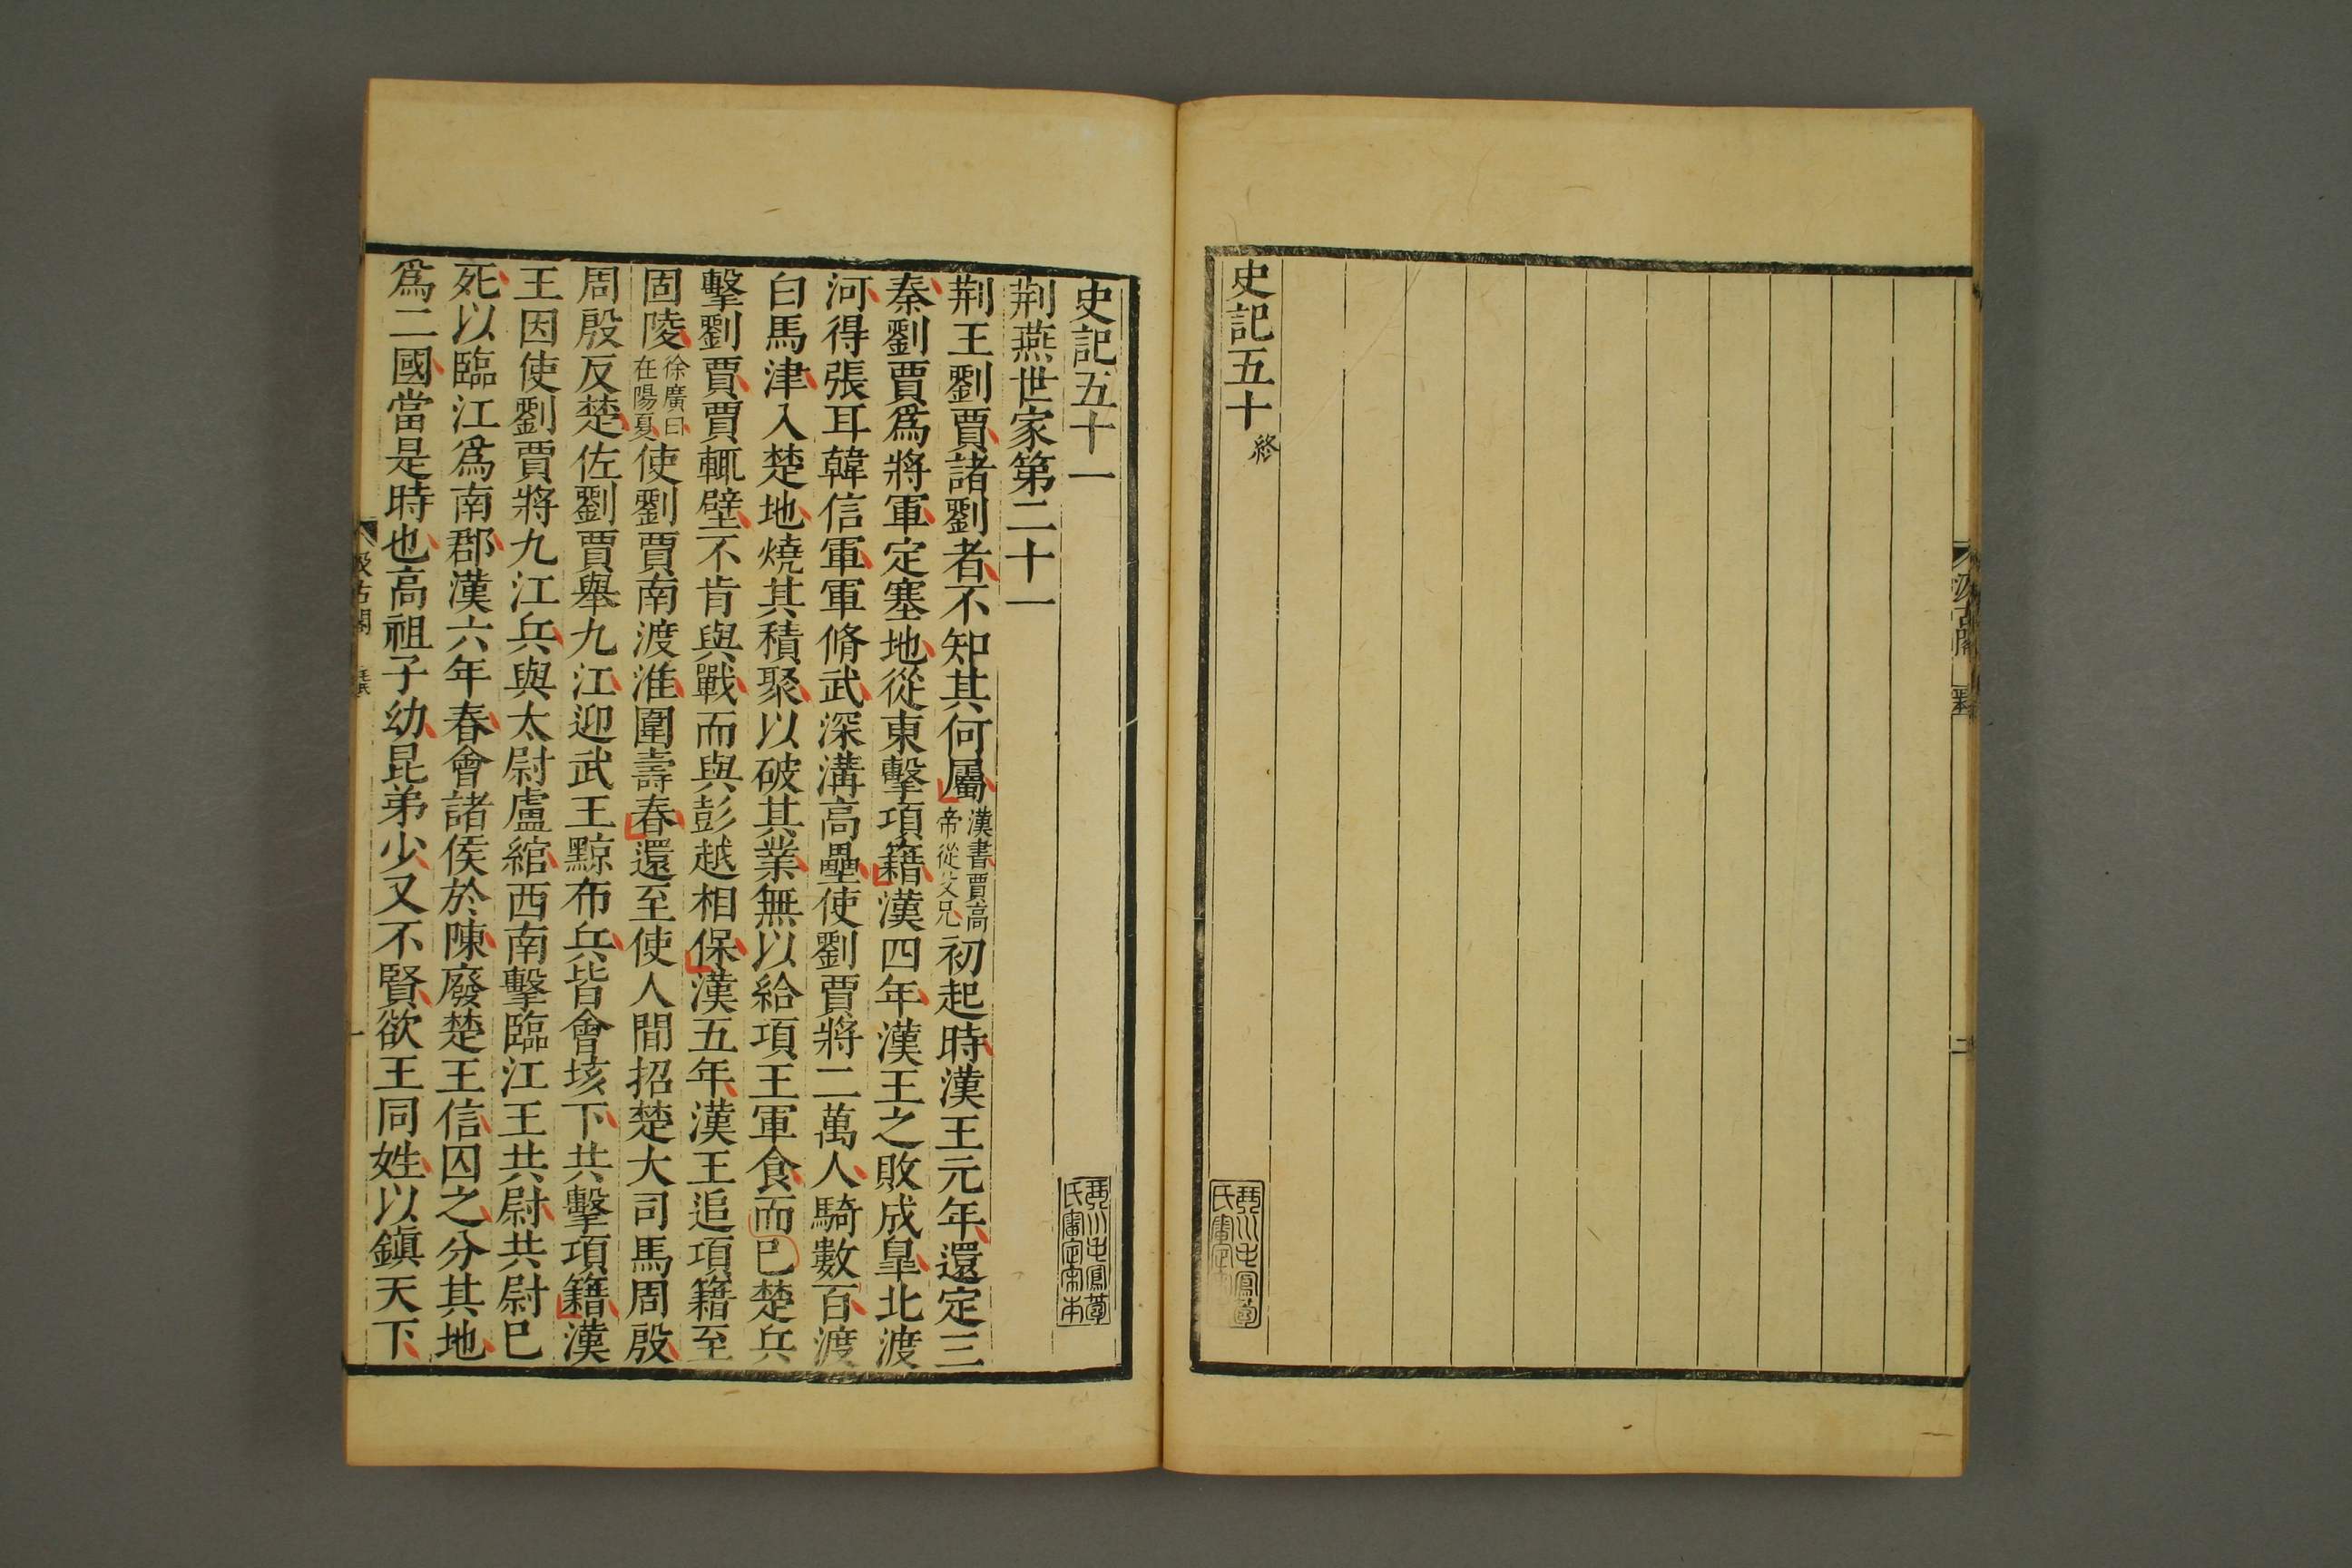 史記五十
終
史記五十一
荆燕世家第二十一
荆王劉賈諸劉者不知其何屬漢書賈高帝從父兄初起時漢王元年還定三
秦劉賈爲將軍定塞地從東擊項籍漢四年漢王之敗成皐北渡
河得張耳韓信軍軍脩武深溝高壘使劉賈將二萬人騎數百渡
白馬津入楚地燒其積聚以破其業無以給項王軍食而已楚兵
擊劉賈賈輒壁不肯與戰而與彭越相保漢五年漢王追項籍至
固陵徐廣曰在陽夏使劉賈南渡淮圍壽春還至使人間招楚大司馬周殷
周殷反楚佐劉賈舉九江迎武王黥布兵皆會垓下共擊項籍漢
王因使劉賈將九江兵與太尉盧綰西南擊臨江王共尉共尉已
死以臨江爲南郡漢六年春會諸侯於陳廢楚王信囚之分其地
爲二國當是時也高祖子幼昆弟少又不賢欲王同姓以鎮天下